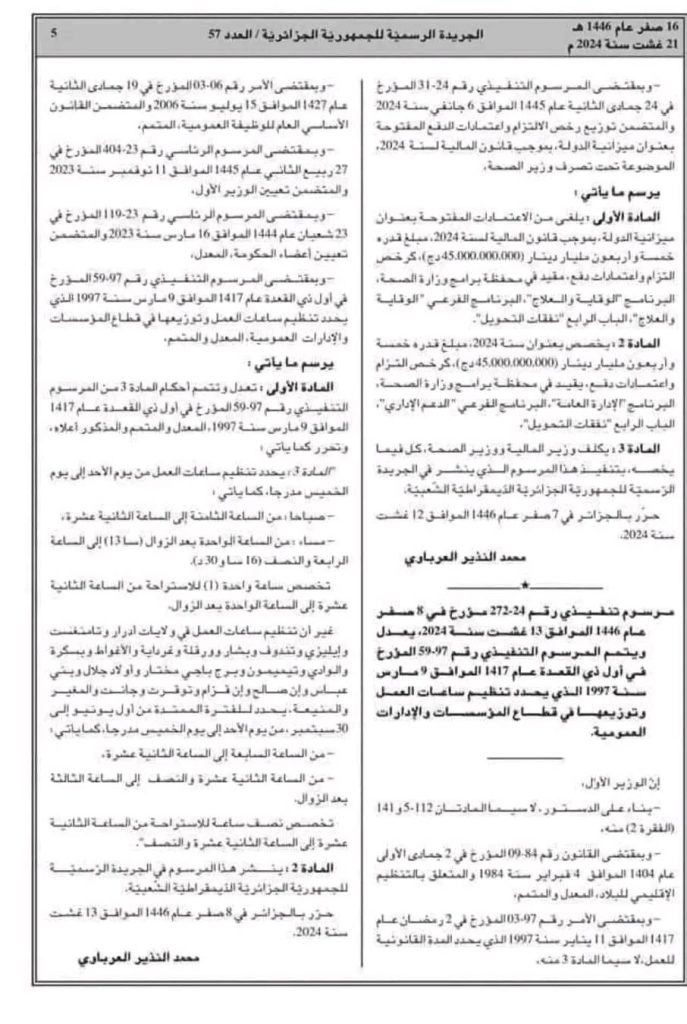 16 صفر عام 1446 هـ
21 غشت سنة 2024 م
الجريدة الرسميّة للجمهوريّة الجزائريّة / العدد 57
5
– وبمقتضى المرسوم التنفيذي رقم 24-31 المؤرخ
في 24 جمادى الثانية عام 1445 الموافق 6 جانفي سنة 2024
والمتضمن توزيع رخص الالتزام واعتمادات الدفع المفتوحة
بعنوان ميزانية الدولة، بموجب قانون المالية لسنة 2024،
الموضوعة تحت تصرف وزير الصحة،
يرسم ما يأتي :
المادة الأولى : يلغى من الاعتمادات المفتوحة بعنوان
ميزانية الدولة، بموجب قانون المالية لسنة 2024، مبلغ قدره
خمسة وأربعون مليار دينار (45.000.000.000 دج)، كرخص
التزام واعتمادات دفع، مقيد في محفظة برامج وزارة الصحة،
البرنامج "الوقاية والعلاج"، البرنامج الفرعي "الوقاية
والعلاج"، الباب الرابع "نفقات التحويل".
المادة 2 : يخصص بعنوان سنة 2024، مبلغ قدره خمسة
وأربعون مليار دينار (45.000.000.000 دج)، كرخص التزام
واعتمادات دفع، يقيد في محفظة برامج وزارة الصحة،
البرنامج "الإدارة العامة"، البرنامج الفرعي "الدعم الإداري"،
الباب الرابع "نفقات التحويل".
المادة 3 : يكلف وزير المالية ووزير الصحة، كل فيما
يخصه، بتنفيذ هذا المرسوم الذي ينشر في الجريدة
الرّسميّة للجمهوريّة الجزائريّة الدّيمقراطيّة الشّعبيّة.
حرّر بالجزائر في 7 صفر عام 1446 الموافق 12 غشت
سنة 2024.
محمد النذير العرباوي
مرسوم تنفيذي رقم 24-272 مؤرخ في 8 صفر
عام 1446 الموافق 13 غشت سنة 2024، يعدل
ويتمم المرسوم التنفيذي رقم 97-59 المؤرخ
في أول ذي القعدة عام 1417 الموافق 9 مارس
سنة 1997 الذي يحدد تنظيم ساعات العمل
وتوزيعها في قطاع المؤسسات والإدارات
العمومية.
إنّ الوزير الأول،
– بناء على الدستور، لا سيما المادتان 112-5 و 141
(الفقرة 2) منه،
– وبمقتضى القانون رقم 84-09 المؤرخ في 2 جمادى الأولى
عام 1404 الموافق 4 فبراير سنة 1984 والمتعلق بالتنظيم
الإقليمي للبلاد، المعدل والمتمم،
– وبمقتضى الأمر رقم 97-03 المؤرخ في 2 رمضان عام
1417 الموافق 11 يناير سنة 1997 الذي يحدد المدة القانونية
للعمل، لا سيما المادة 3 منه،
– وبمقتضى الأمر رقم 06-03 المؤرخ في 19 جمادى الثانية
عام 1427 الموافق 15 يوليو سنة 2006 والمتضمن القانون
الأساسي العام للوظيفة العمومية، المتمم،
– وبمقتضى المرسوم الرئاسي رقم 23-404 المؤرخ في
27 ربيع الثاني عام 1445 الموافق 11 نوفمبر سنة 2023
والمتضمن تعيين الوزير الأول،
– وبمقتضى المرسوم الرئاسي رقم 23-119 المؤرخ في
23 شعبان عام 1444 الموافق 16 مارس سنة 2023 والمتضمن
تعيين أعضاء الحكومة، المعدل،
– وبمقتضى المرسوم التنفيذي رقم 97-59 المؤرخ
في أول ذي القعدة عام 1417 الموافق 9 مارس سنة 1997 الذي
يحدد تنظيم ساعات العمل وتوزيعها في قطاع المؤسسات
والإدارات العمومية، المعدل والمتمم،
يرسم ما يأتي :
المادة الأولى : تعدل وتتمم أحكام المادة 3 من المرسوم
التنفيذي رقم 97-59 المؤرخ في أول ذي القعدة عام 1417
الموافق 9 مارس سنة 1997، المعدل والمتمم والمذكور أعلاه،
وتحرر كما يأتي :
"المادة 3 : يحدد تنظيم ساعات العمل من يوم الأحد إلى يوم
الخميس مدرجا، كما يأتي :
– صباحا : من الساعة الثامنة إلى الساعة الثانية عشرة،
– مساء : من الساعة الواحدة بعد الزوال (سا 13) إلى الساعة
الرابعة والنصف (16 سا و 30 د).
تخصص ساعة واحدة (1) للاستراحة من الساعة الثانية
عشرة إلى الساعة الواحدة بعد الزوال.
غير أن تنظيم ساعات العمل في ولايات أدرار وتامنغست
وإيليزي وتندوف وبشار وورقلة وغرداية والأغواط وبسكرة
والوادي وتيميمون وبرج باجي مختار وأولاد جلال وبني
عباس وإن صالح وإن قزام وتوقرت وجانت والمغير
والمنيعة، يحدد للفترة الممتدة من أول يونيو إلى
30 سبتمبر، من يوم الأحد إلى يوم الخميس مدرجا، كما يأتي :
– من الساعة السابعة إلى الساعة الثانية عشرة،
– من الساعة الثانية عشرة والنصف إلى الساعة الثالثة
بعد الزوال.
تخصص نصف ساعة للإستراحة من الساعة الثانية
عشرة إلى الساعة الثانية عشرة والنصف".
المادة 2 : ينشر هذا المرسوم في الجريدة الرّسميّة
للجمهوريّة الجزائريّة الدّيمقراطيّة الشّعبيّة.
حرّر بالجزائر في 8 صفر عام 1446 الموافق 13 غشت
سنة 2024.
محمد النذير العرباوي